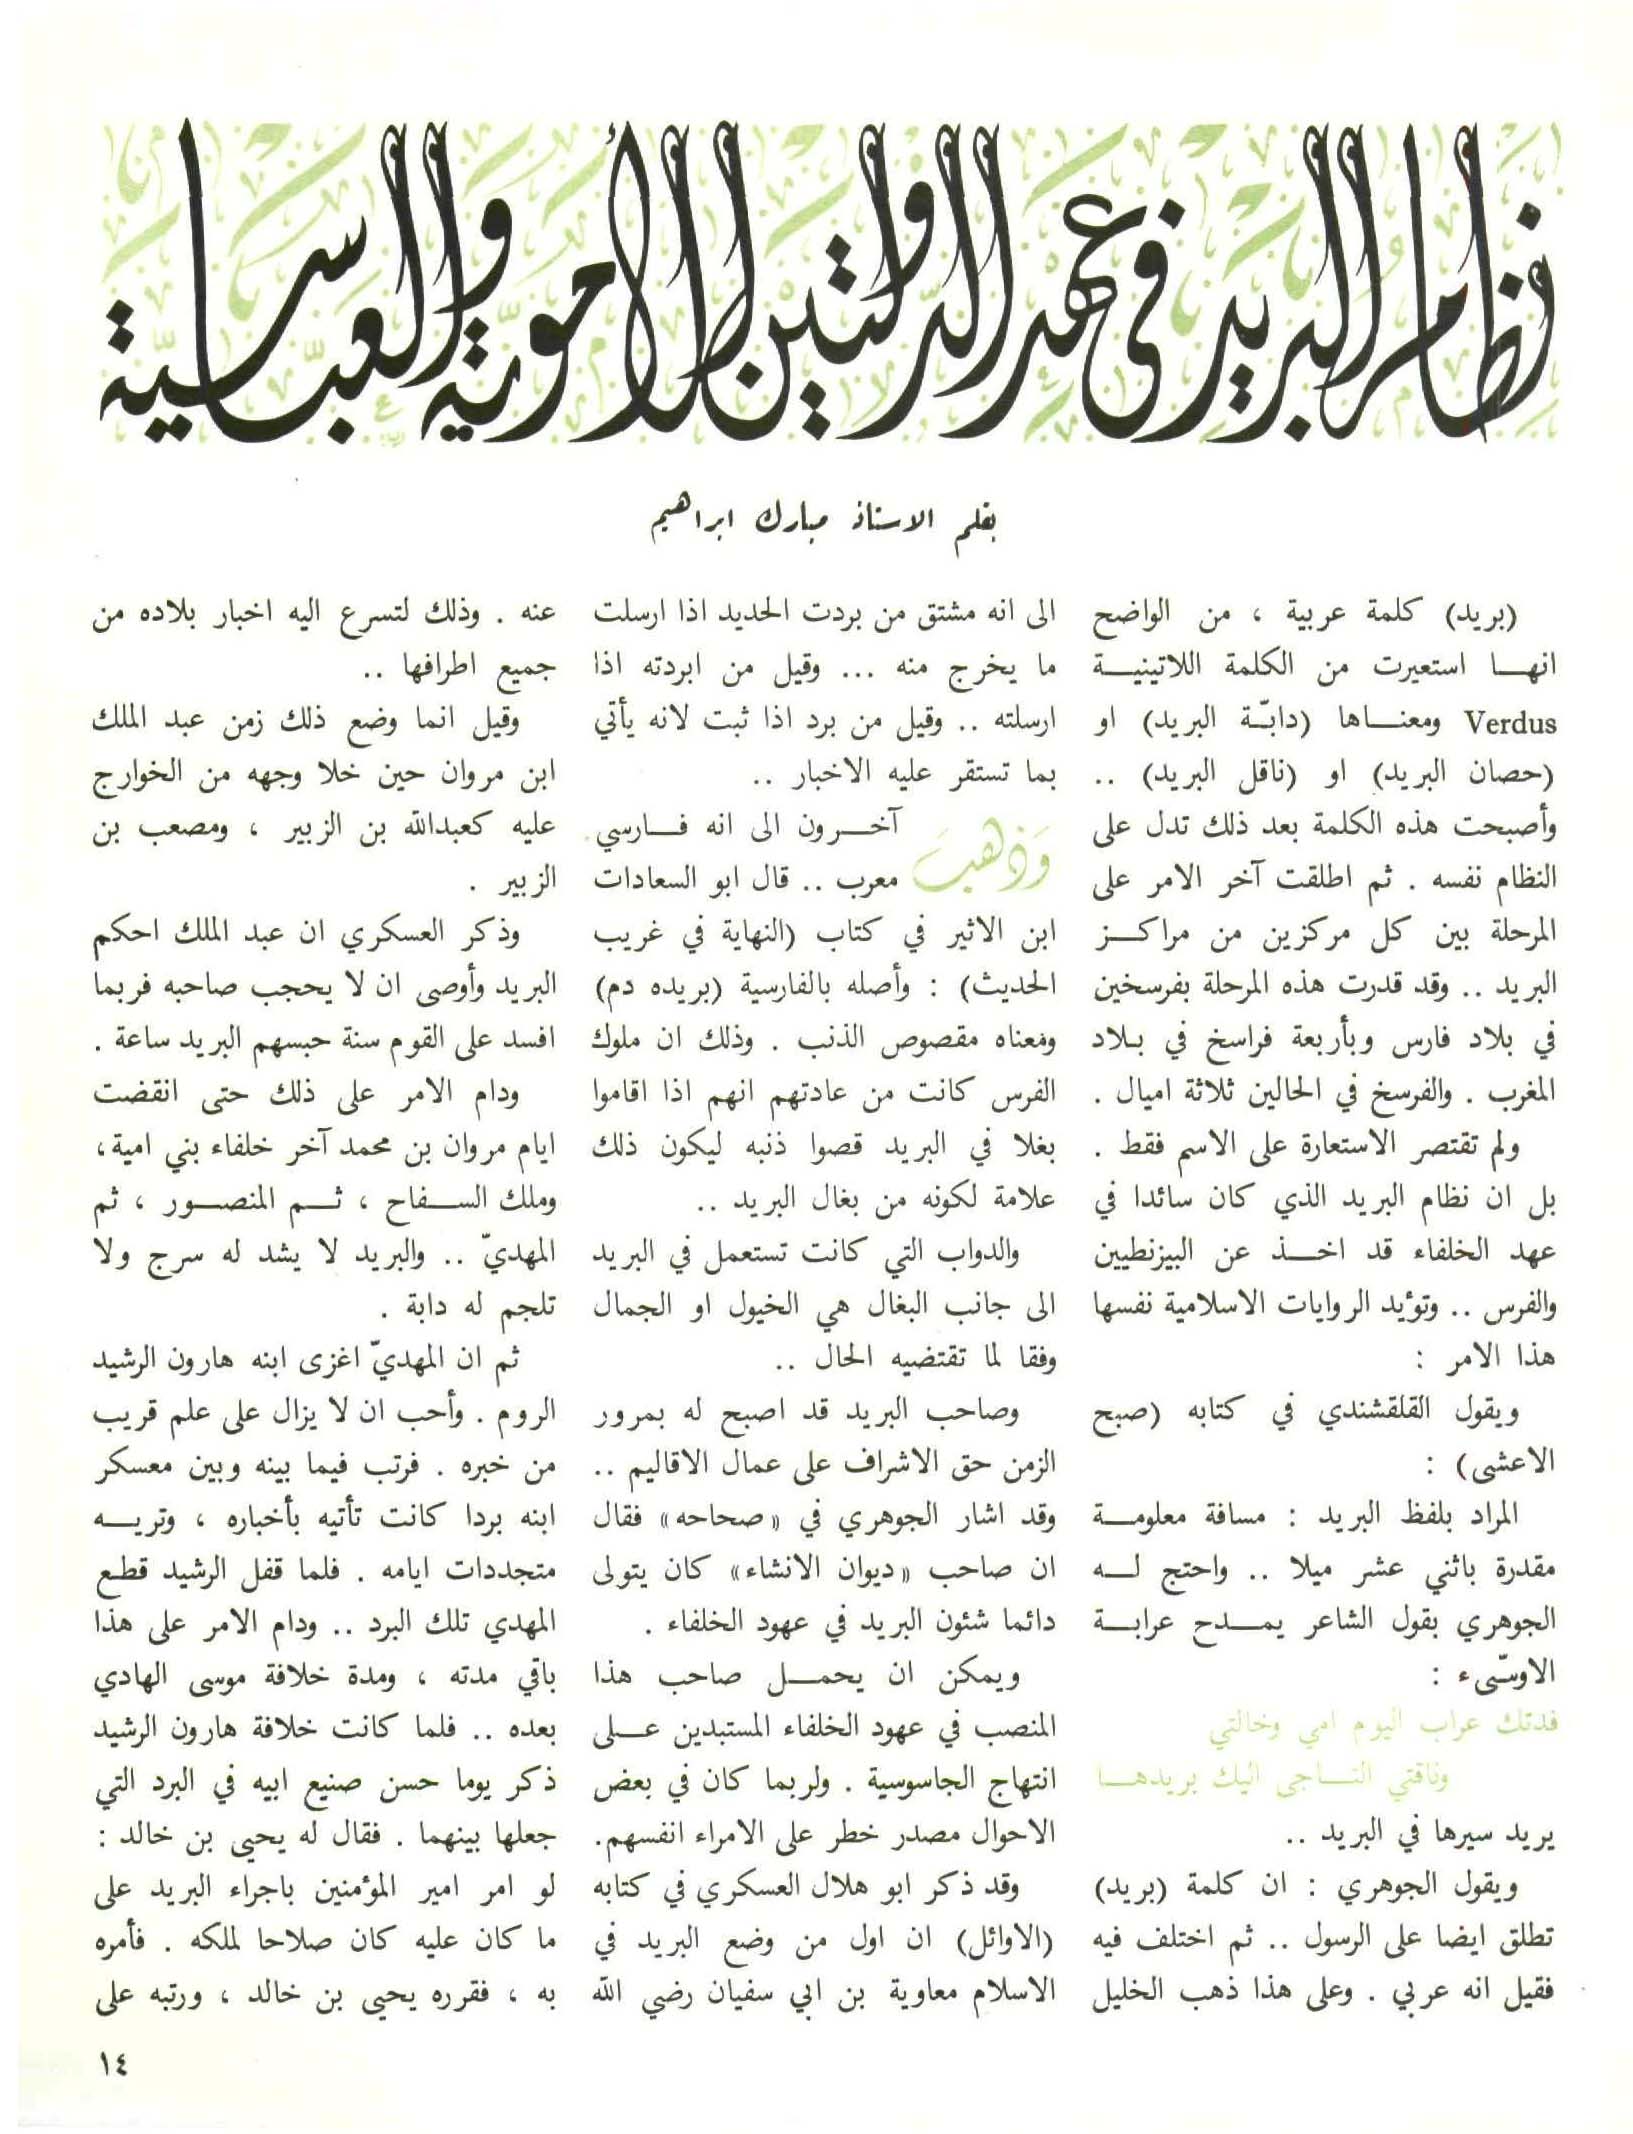 نظام البريد في عهد الدولتين الأموية والعباسية
بقلم الاستاذ مبارك ابراهيم
(بريد) كلمة عربية ، من الواضح
انهــا استعيرت من الكلمة اللاتينيــة
Verdus ومعنــاها (دابّـة البريد) او
(حصان البريد) او (ناقل البريد) ..
وأصبحت هذه الكلمة بعد ذلك تدل على
النظام نفسه . ثم اطلقت آخر الامر على
المرحلة بين كل مركزين من مراكــز
البريد .. وقد قدرت هذه المرحلة بفرسخين
في بلاد فارس وبأربعة فراسخ في بـلاد
المغرب . والفرسخ في الحالين ثلاثة اميال .
ولم تقتصر الاستعارة على الاسم فقط .
بل ان نظام البريد الذي كان سائدا في
عهد الخلفاء قد اخــذ عن البيزنطيين
والفرس .. وتؤيد الروايات الاسلامية نفسها
هذا الامر :
ويقول القلقشندي في كتابه (صبح
الاعشى) :
المراد بلفظ البريد : مسافة معلومــة
مقدرة باثني عشر ميلا .. واحتج لــه
الجوهري بقول الشاعر يمــدح عرابــة
الاوسّىء :
فدتك عراب اليوم امي وخالتي
وناقتي النــاجى اليك بريدهــا
يريد سيرها في البريد ..
ويقول الجوهري : ان كلمة (بريد)
تطلق ايضا على الرسول .. ثم اختلف فيه
فقيل انه عربي . وعلى هذا ذهب الخليل
الى انه مشتق من بردت الحديد اذا ارسلت
ما يخرج منه ... وقيل من ابردته اذا
ارسلته .. وقيل من برد اذا ثبت لانه يأتي
بما تستقر عليه الاخبار ..
وَذهبَ آخــرون الى انه فــارسي
معرب .. قال ابو السعادات
ابن الاثير في كتاب (النهاية في غريب
الحديث) : وأصله بالفارسية (بريده دم)
ومعناه مقصوص الذنب . وذلك ان ملوك
الفرس كانت من عادتهم انهم اذا اقاموا
بغلا في البريد قصوا ذنبه ليكون ذلك
علامة لكونه من بغال البريد ..
والدواب التي كانت تستعمل في البريد
الى جانب البغال هي الخيول او الجمال
وفقا لما تقتضيه الحال ..
وصاحب البريد قد اصبح له بمرور
الزمن حق الاشراف على عمال الاقاليم ..
وقد اشار الجوهري في «صحاحه» فقال
ان صاحب «ديوان الانشاء» كان يتولى
دائما شئون البريد في عهود الخلفاء .
ويمكن ان يحمــل صاحب هذا
المنصب في عهود الخلفاء المستبدين عــلى
انتهاج الجاسوسية . ولربما كان في بعض
الاحوال مصدر خطر على الامراء انفسهم.
وقد ذكر ابو هلال العسكري في كتابه
(الاوائل) ان اول من وضع البريد في
الاسلام معاوية بن ابي سفيان رضي الله
عنه . وذلك لتسرع اليه اخبار بلاده من
جميع اطرافها ..
وقيل انما وضع ذلك زمن عبد الملك
ابن مروان حين خلا وجهه من الخوارج
عليه كعبدالله بن الزبير ، ومصعب بن
الزبير .
وذكر العسكري ان عبد الملك احكم
البريد وأوصى ان لا يحجب صاحبه فربما
افسد على القوم سنة حبسهم البريد ساعة .
ودام الامر على ذلك حتى انقضت
ايام مروان بن محمد آخر خلفاء بني امية،
وملك الســفاح ، ثــم المنصــور ، ثم
المهديّ .. والبريد لا يشد له سرج ولا
تلجم له دابة .
ثم ان المهديّ اغزى ابنه هارون الرشيد
الروم . وأحب ان لا يزال على علم قريب
من خبره . فرتب فيما بينه وبين معسكر
ابنه بردا كانت تأتيه بأخباره ، وتريــه
متجددات ايامه . فلما قفل الرشيد قطع
المهدي تلك البرد .. ودام الامر على هذا
باقي مدته ، ومدة خلافة موسى الهادي
بعده .. فلما كانت خلافة هارون الرشيد
ذكر يوما حسن صنيع ابيه في البرد التي
جعلها بينهما . فقال له يحيى بن خالد :
لو امر امير المؤمنين باجراء البريد على
ما كان عليه كان صلاحا لملكه . فأمره
به ، فقرره يحيى بن خالد ، ورتبه على
١٤